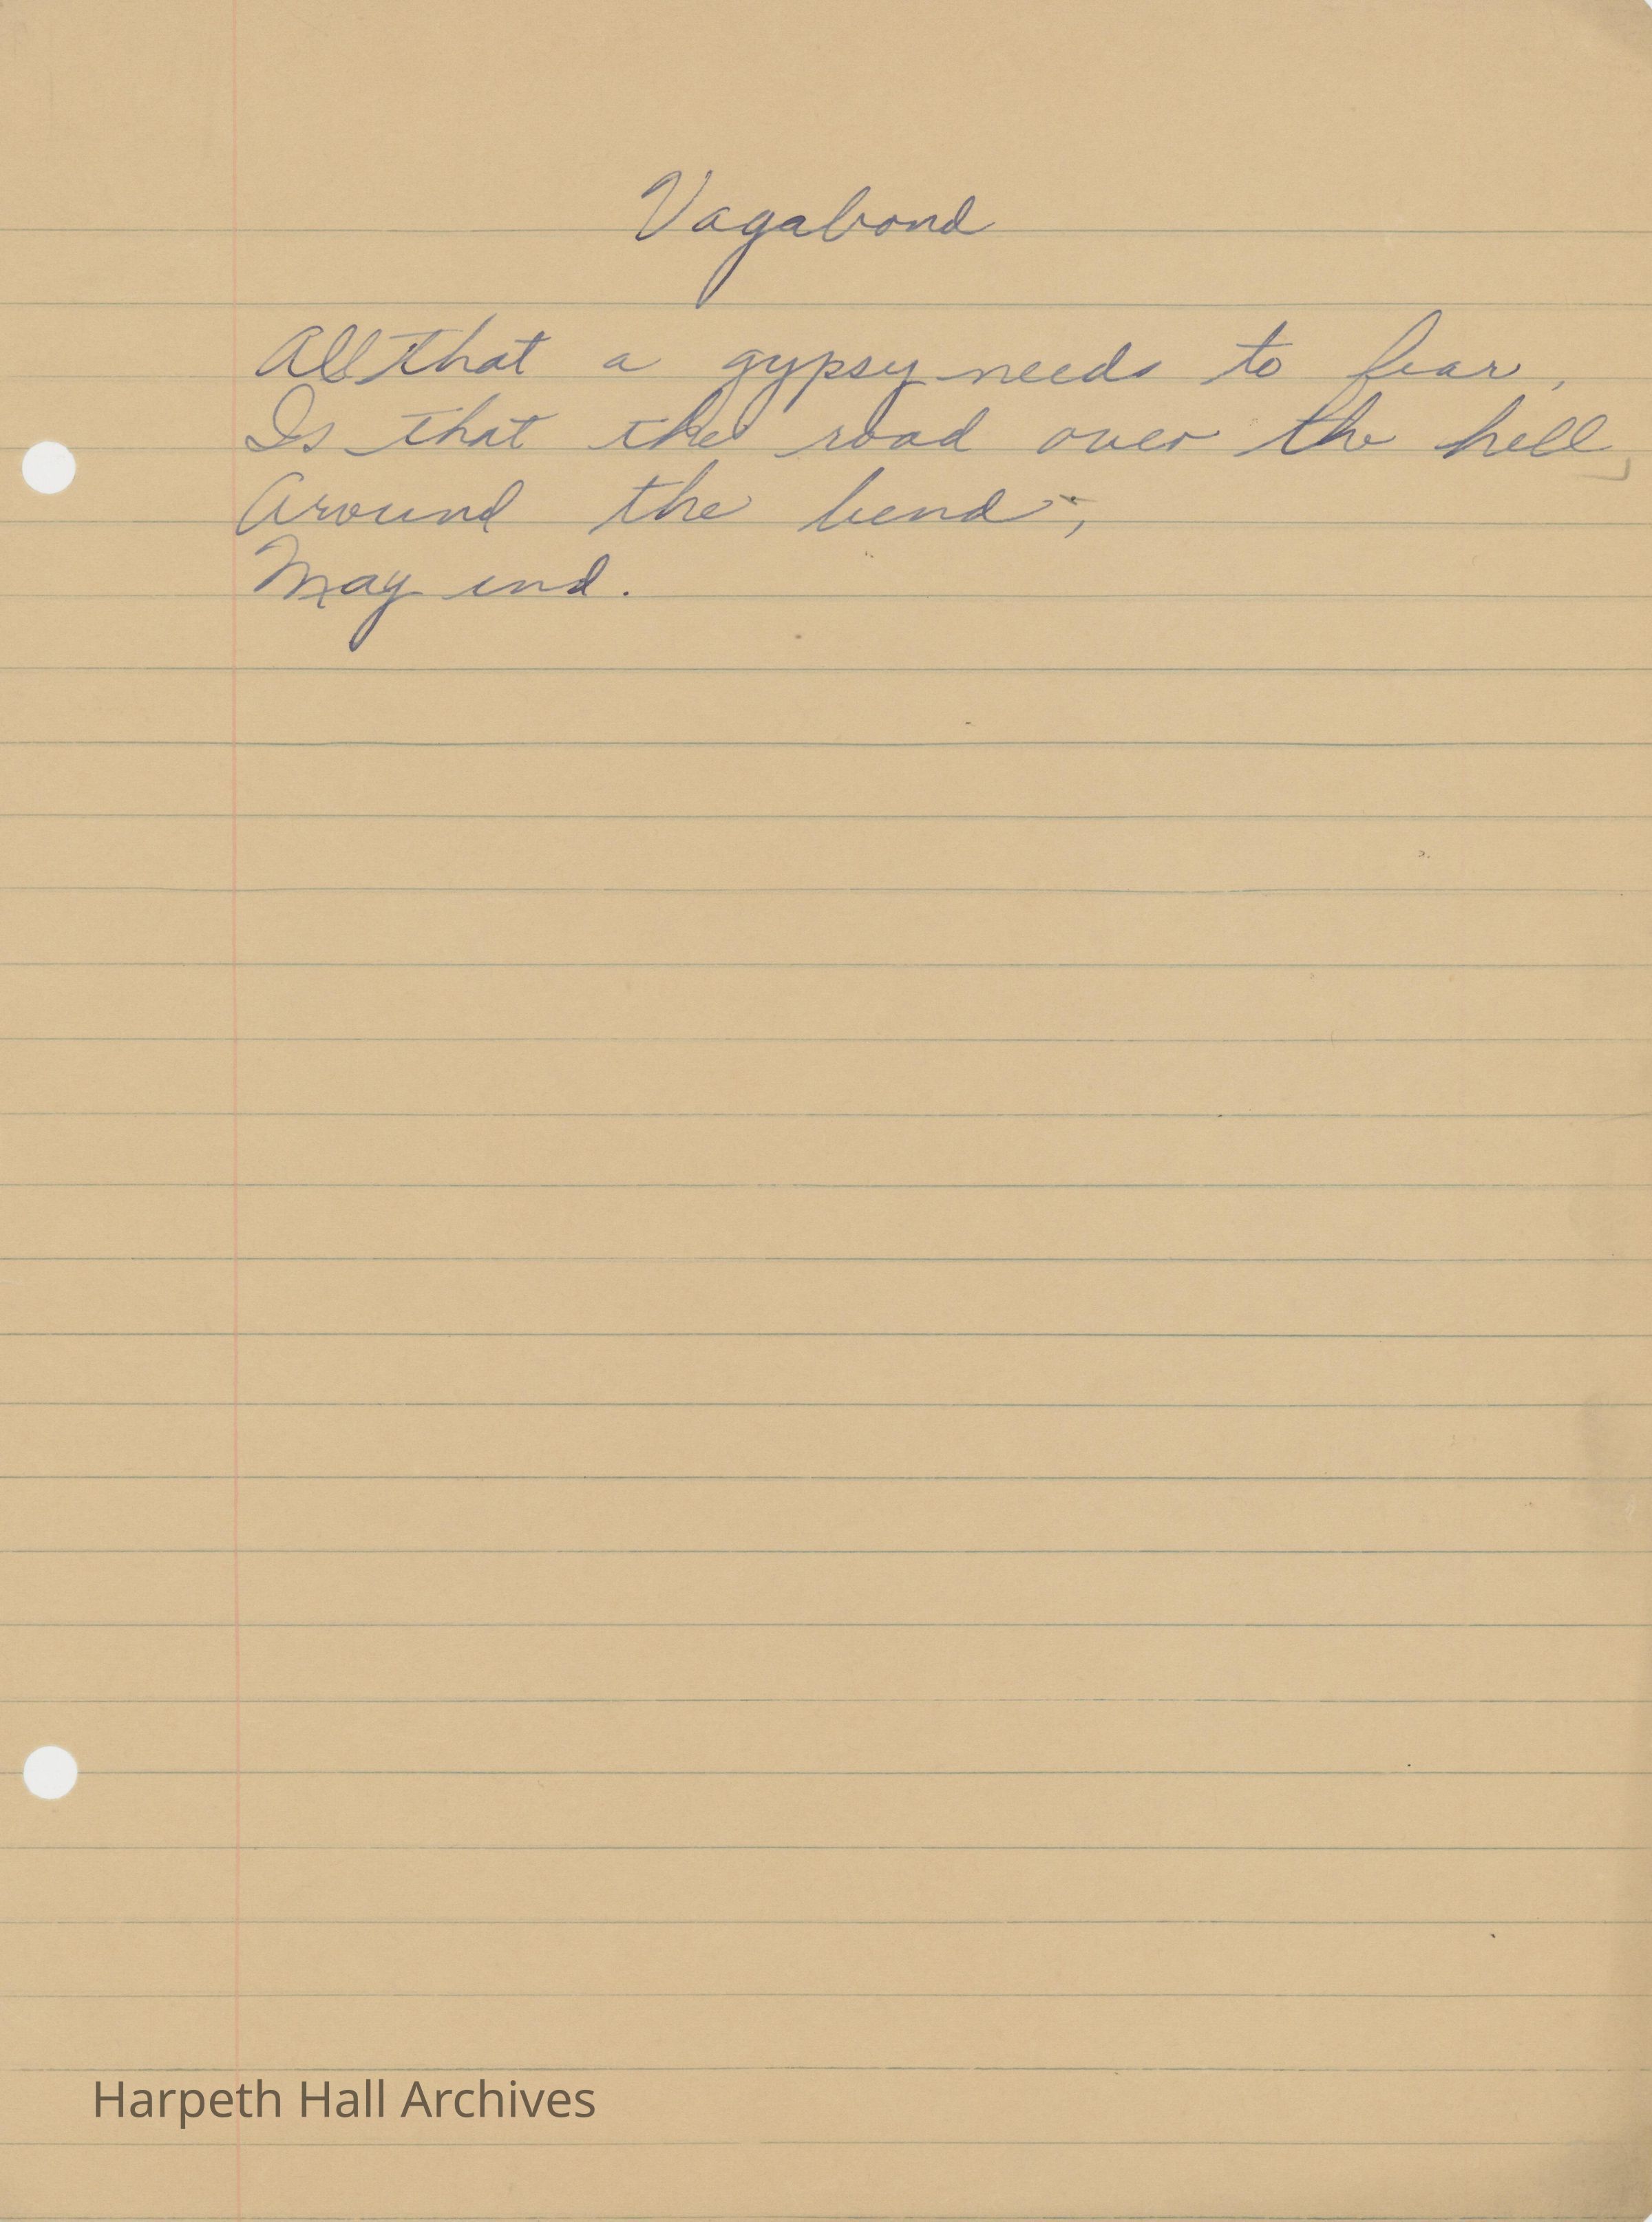 Vagabond
All that a gypsy needs to fear,
Is that the road over the hill,
Around the bend,
May end.
Harpeth Hall Archives